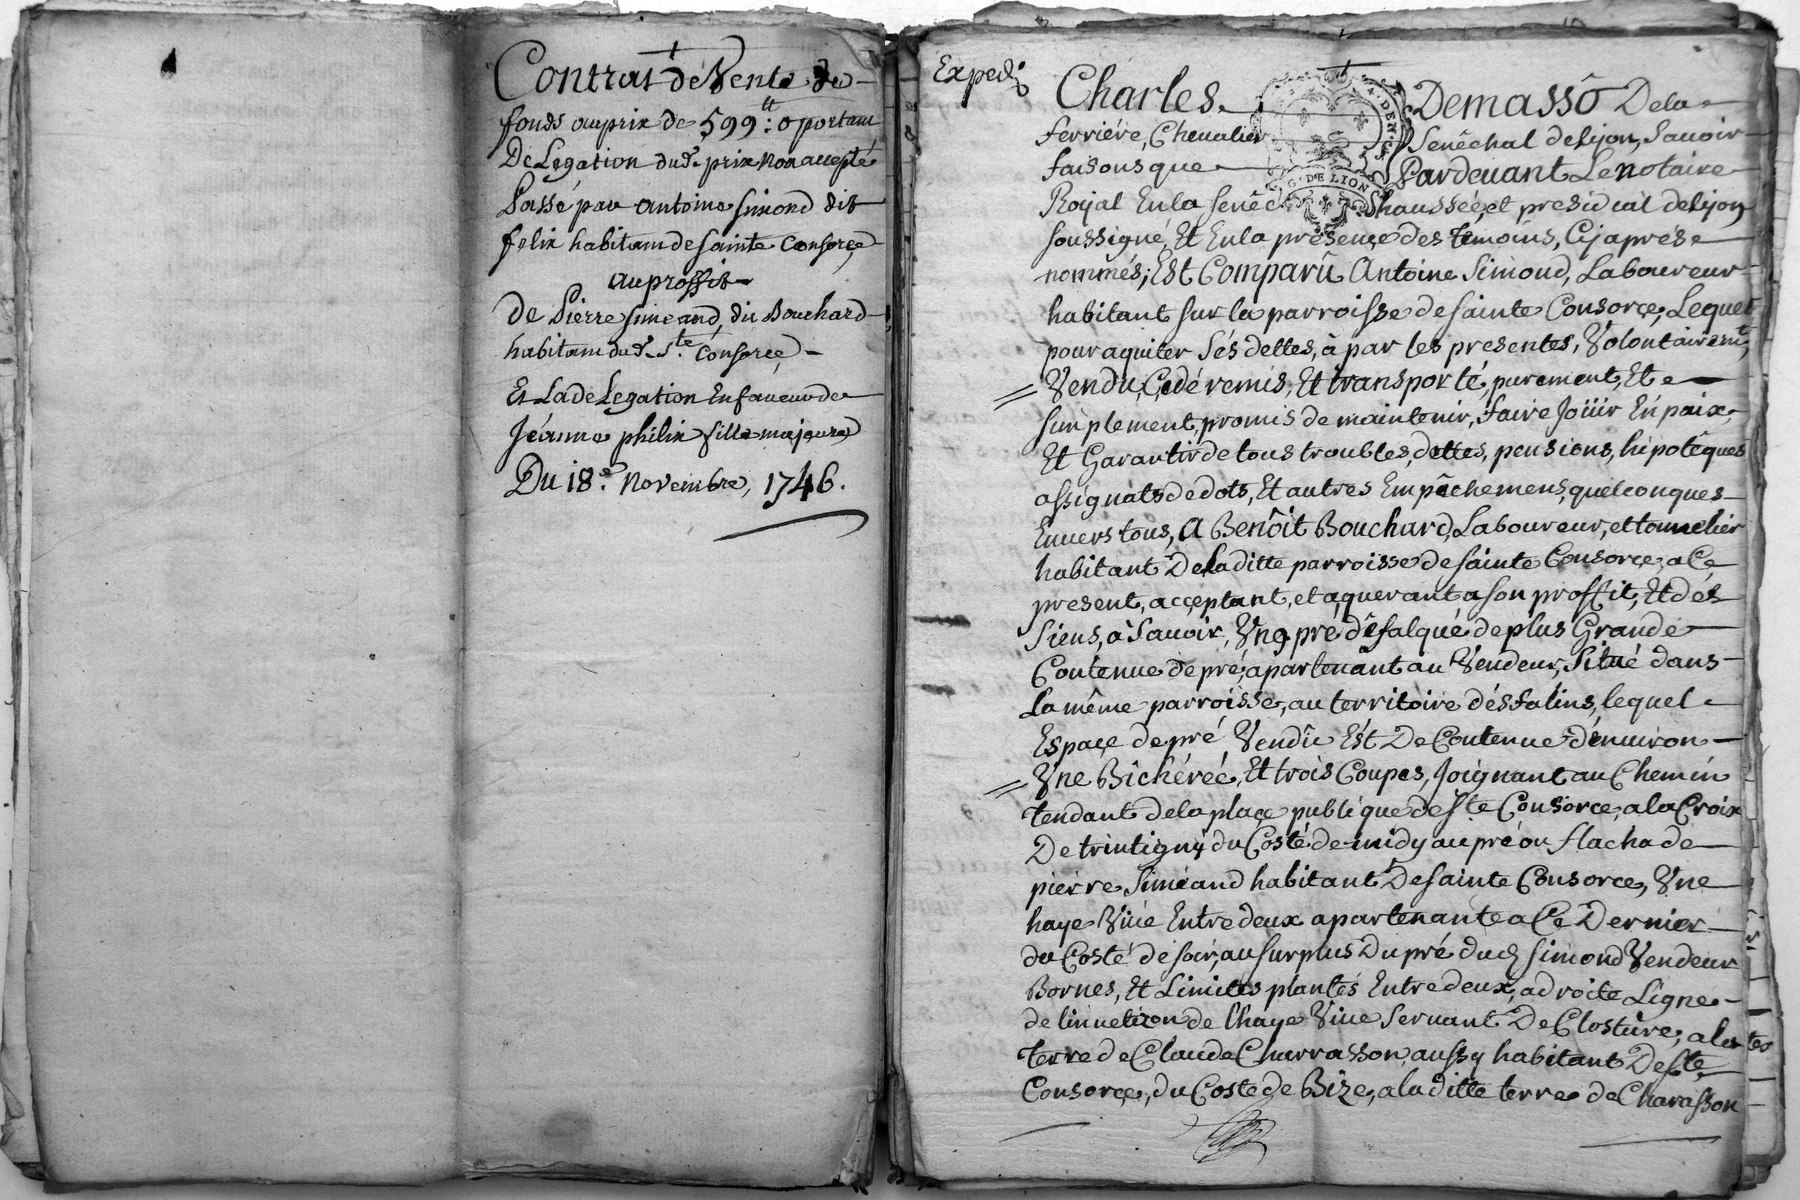 Contrat de Vente de
fonds au prix de 599 tt: o portant
De Legation dud. prix non accepté
Passé par antoine simond dit
felix habitant de sainte Consorce
au proffit
de Pierre simeand dit Bouchard
habitant dud. Ste. Consorce
Et La de Legation En faveur de
Jéanne philix fille majeure
Du 18e. Novembre, 1746.
Exped.
Charles Demassô Dela
ferriére, Chevalier Senêchal de Lyon, Sauoir
faisons que Pardeuant Le notaire
G. DE LION
Royal En la Senêchaussée, et presidial de Lyon
soussigné, Et En la presence des temoins, Cy aprés
nommés; Est Comparû Antoine Simond, Laboureur
habitant sur la parroisse de sainte Consorce, Lequel
pour aquiter Sés dettes, à par les presentes, Volontairemt,
Vendu, Cedé remis, Et transporté, purement, Et
simplement, promis de maintenir, faire Joüir En paix,
Et Garantir de tous troubles, dettes, pensions, hipotêques
assignats de dots, Et autres Empêchemens, quelconques
Enuers tous, A Benôit Bouchard, Laboureur, et tonnelier
habitant De la ditte parroisse de sainte Consorce, a Ce
present, acceptant, et aquerant a son proffit, Et dés
siens, à Sauoir, Vng pré dêfalqué de plus Grande
Contenue de pré, apartenant au Vendeur, Situé dans
La même parroisse, au territoire dés falins, lequel
Espace de pré Vendu Est De Contenue d'enuiron
Vne Bichérée, Et trois Coupes, Joignant au Chemin
tendant de la place publique de Ste Consorce, a la Croix
De trintigny du Costé de midy au pré ou flacha de
pierre Simeand habitant De sainte Consorce, Vne
haye Viue Entre deux apartenante a Ce Dernier
du Costé de soir, au surplus Du pré dud. simond Vendeur
Bornes, Et Limites plantés Entre deux, a droite Ligne
de lad haye Viue Seruant De Closture, a la
terre de Claude Charrasson, aussy habitant De Ste
Consorce, du Coste de Bize, a la ditte terre de Charasson